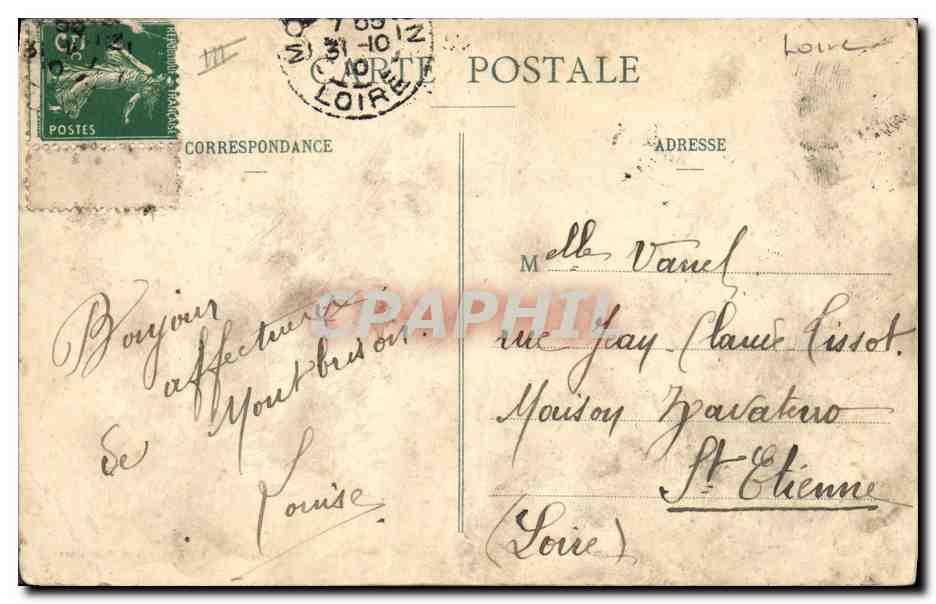 Loire
CARTE POSTALE
5
POSTES
REPUBLIQUE FRANCAISE
MO IN
7 55
31-10
10
LOIRE
CORRESPONDANCE
ADRESSE
Bonjour
affectueux
de Montbrison.
Louise
Melle Vanel
rue Jean-Claude Tissot.
Maison Zavaterro
St Etienne
(Loire)
CPAPHIL